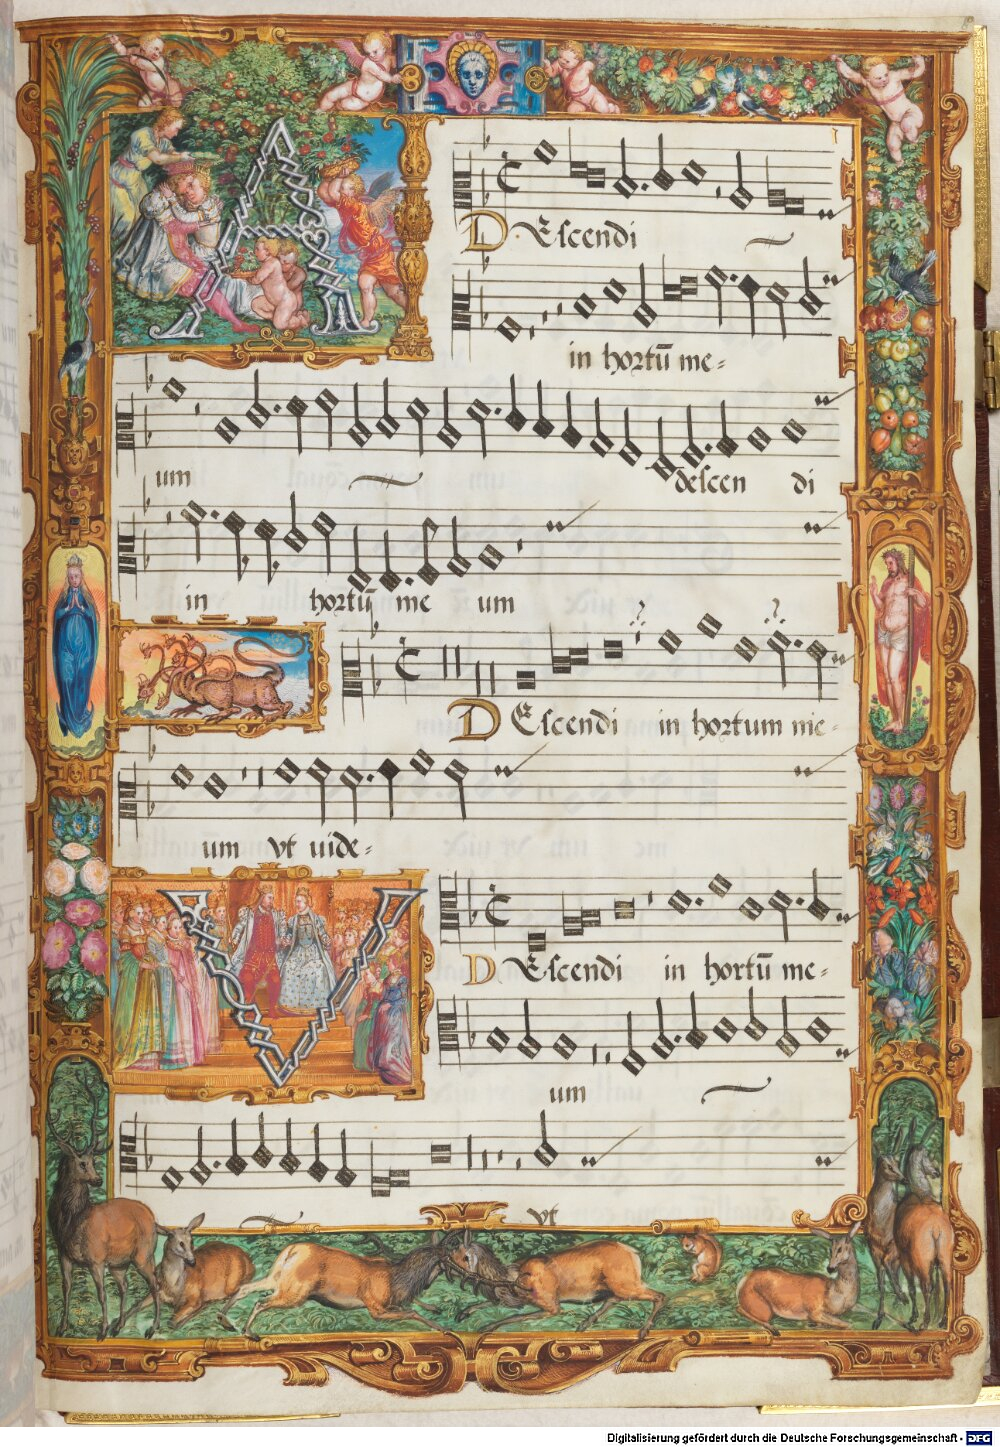 A
DEscendi
in hortũ me-
um descen di
in hortũ me um
DEscendi in hortum me-
um vt uide-
V
DEscendi in hortũ me-
um
vt
Digitalisierung gefördert durch die Deutsche Forschungsgemeinschaft - DFG